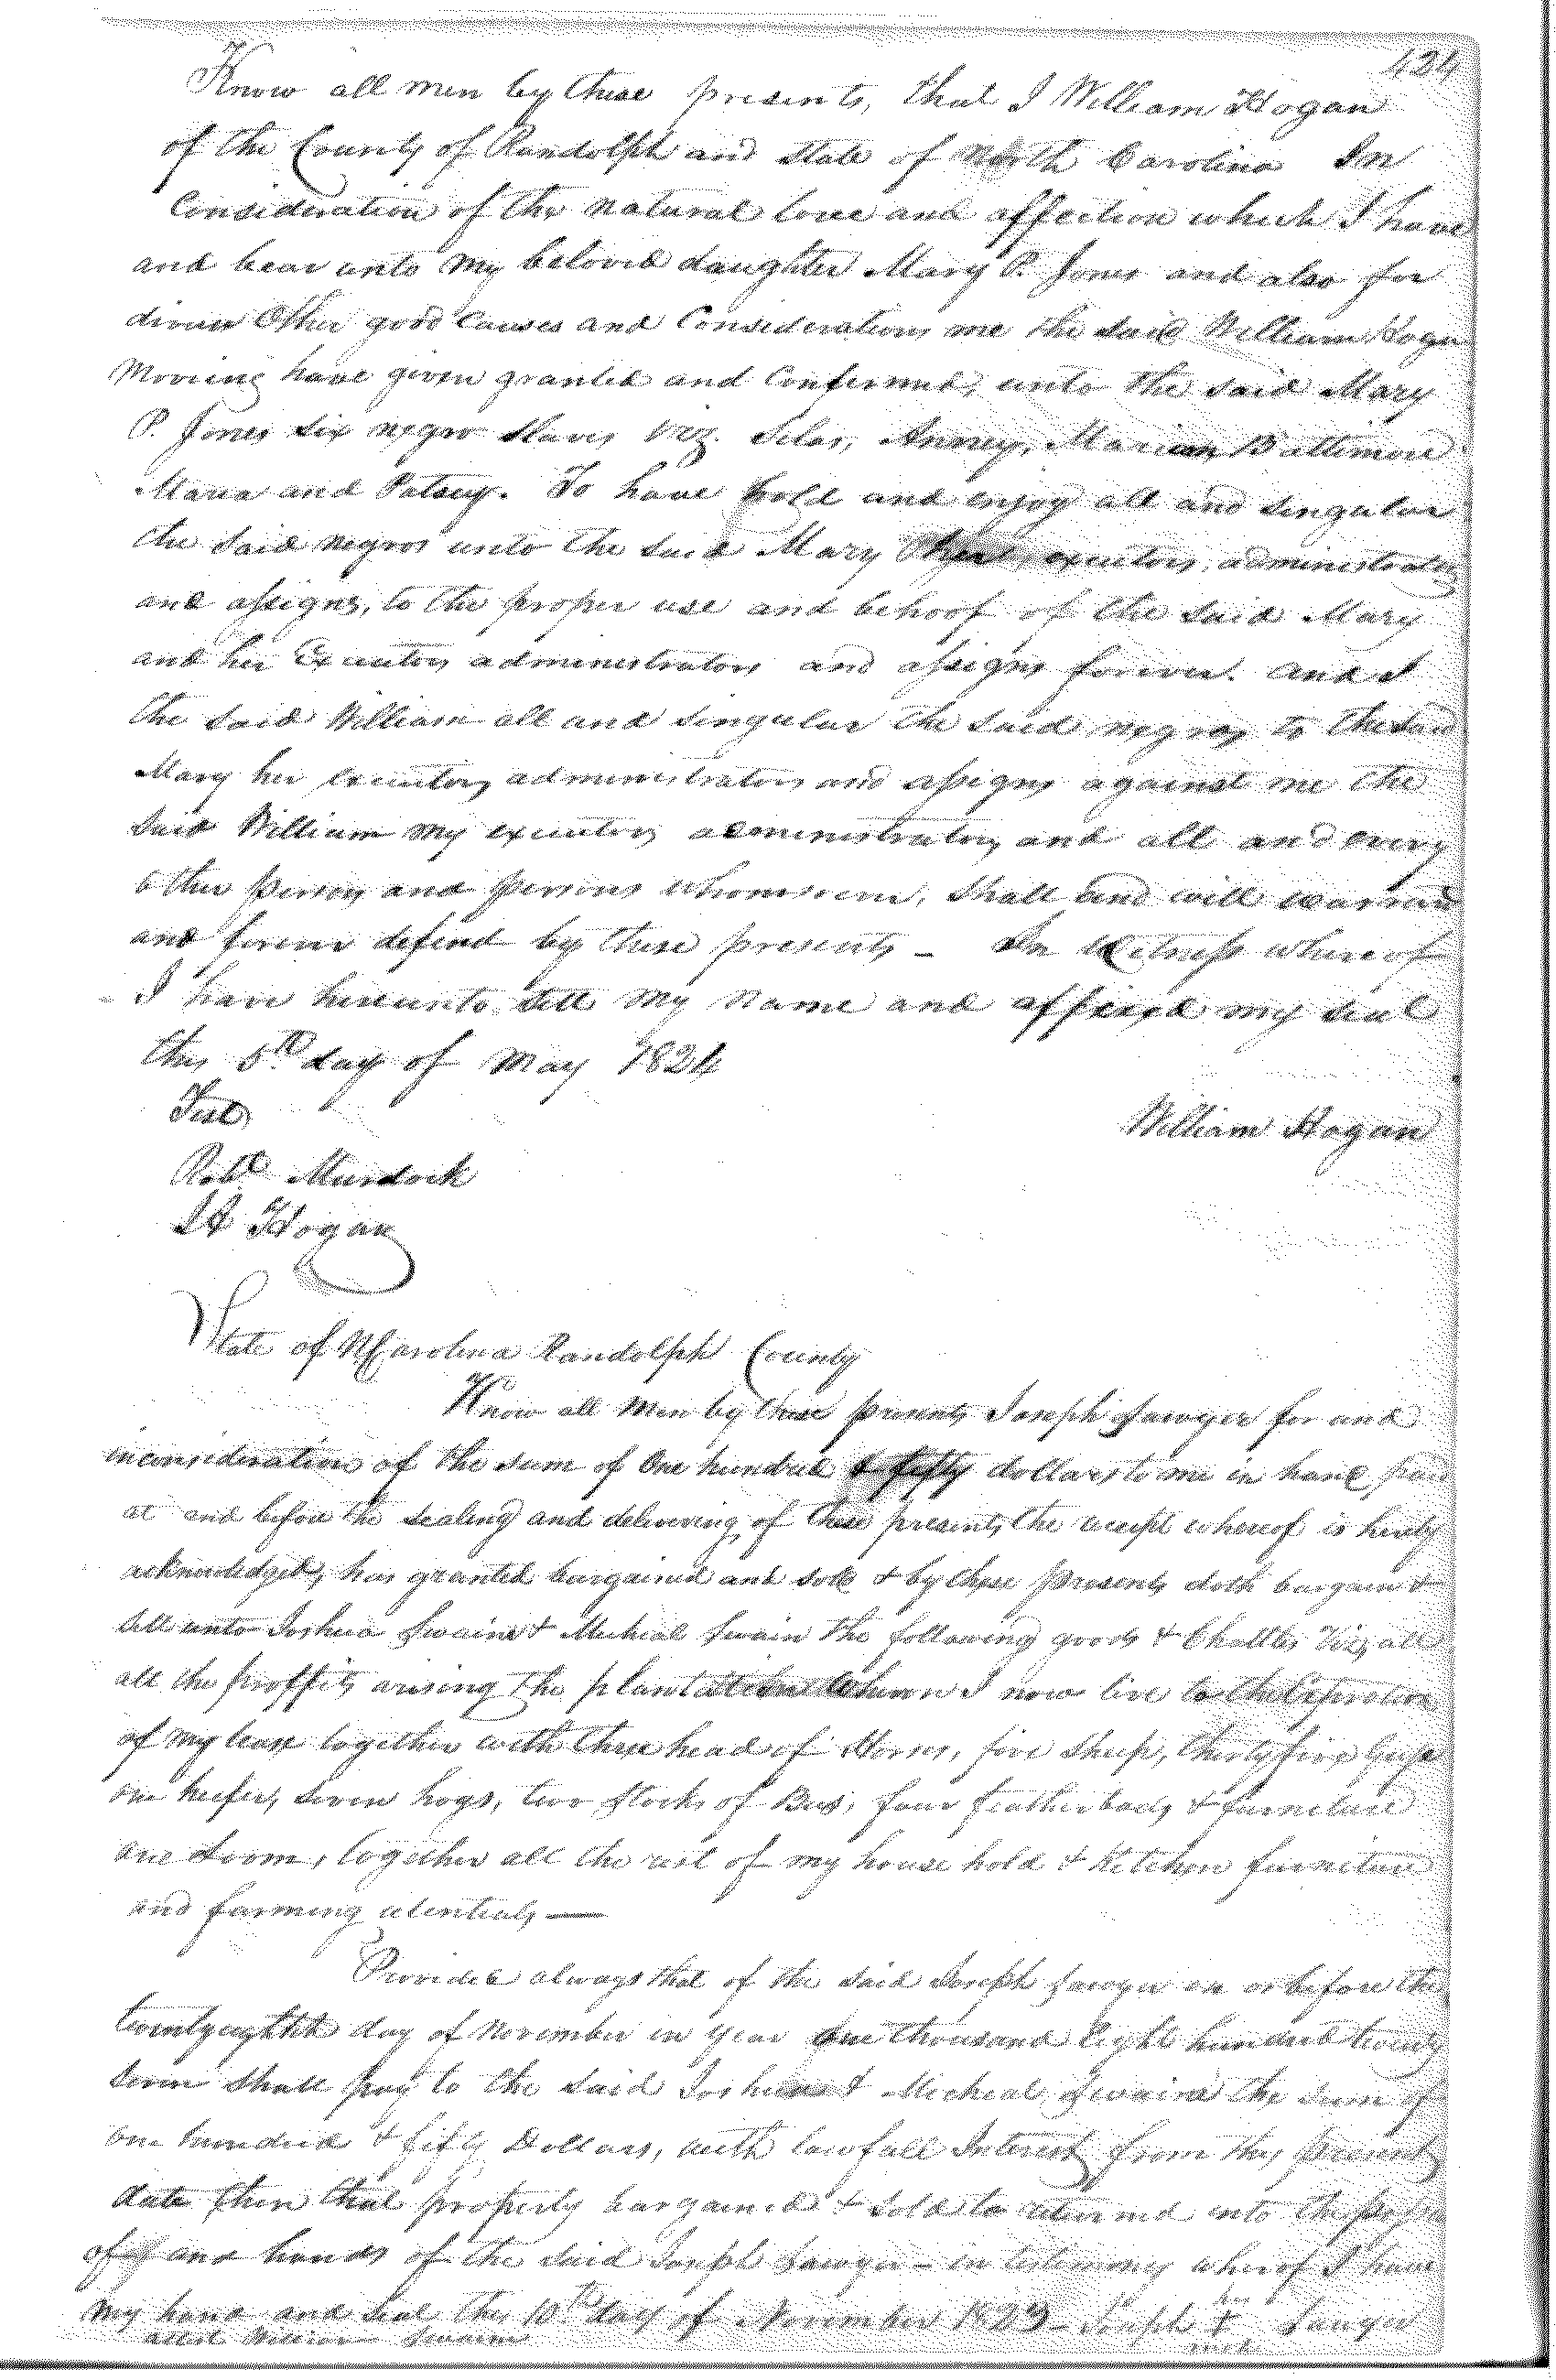 424
Know all men by these presents, that I William Hogan
of the County of Randolph and State of North Carolina In
Consideration of the natural love and affection which I have
and bear unto my beloved daughter Mary P. Jones and also for
divers Other good Causes and Considerations me the said William Hogan
Moving have given granted and Confirmed, unto the said Mary
P. Jones six negro Slaves Viz. Silas, Anney, Baltimore
Maria and Patsey. To have hold and enjoy all and singular
the said negros unto the said Mary executors, administrators
and assigns, to the proper use and behoof of the said Mary
and her Executors administrators and assigns forever. And I
the said William all and singular the said negros to the said
Mary her executors administrators and assigns against me the
said William my executors administrators and all and every
other person and persons whomsoever, shall and will warrant
and forever defend by these presents – In Witness whereof
I have hereunto sett my name and affixed my seal
this 5th day of May 1824
Test
William Hogan
Robt. Murdock
Hogan
State of N Carolina Randolph County
Know all men by these presents Joseph Sawyer for and
inconsideration of the sum of One hundred & fifty dollars to me in hand paid
at and before the sealing and delivering of these presents, the receipt whereof is hereby
acknowledged, has granted bargained and sold & by these presents doth bargain &
sell unto Joshua Swaim & Micheal Swaim the following goods & Chattles Viz, all
all the proffits arising the plantation whereon I now live to the Expiration
of my lease together with three head of Horses, five sheep, thirtyfive Geese
one heifer, seven hogs, two stocks of Bees, four featherbeds & furniture
one Loom, together all the rest of my house hold & Kitchen furniture
and farming utentials —
Provided always that if the said Joseph Sawyer on or before the
twentyeighth day of November in year One thousand Eight hundred twenty
seven shall pay to the said Joshua & Micheal Swaim the sum of
one hundred & fifty Dollars, with lawfull Interest from this present
date then that property bargained & sold to returned into the
of and hands of the said Joseph Sawyer – in testimony wherof I have
my hand and seal this 10th day of November 1823 Joseph his + Sawyer
attest William Swaim mark